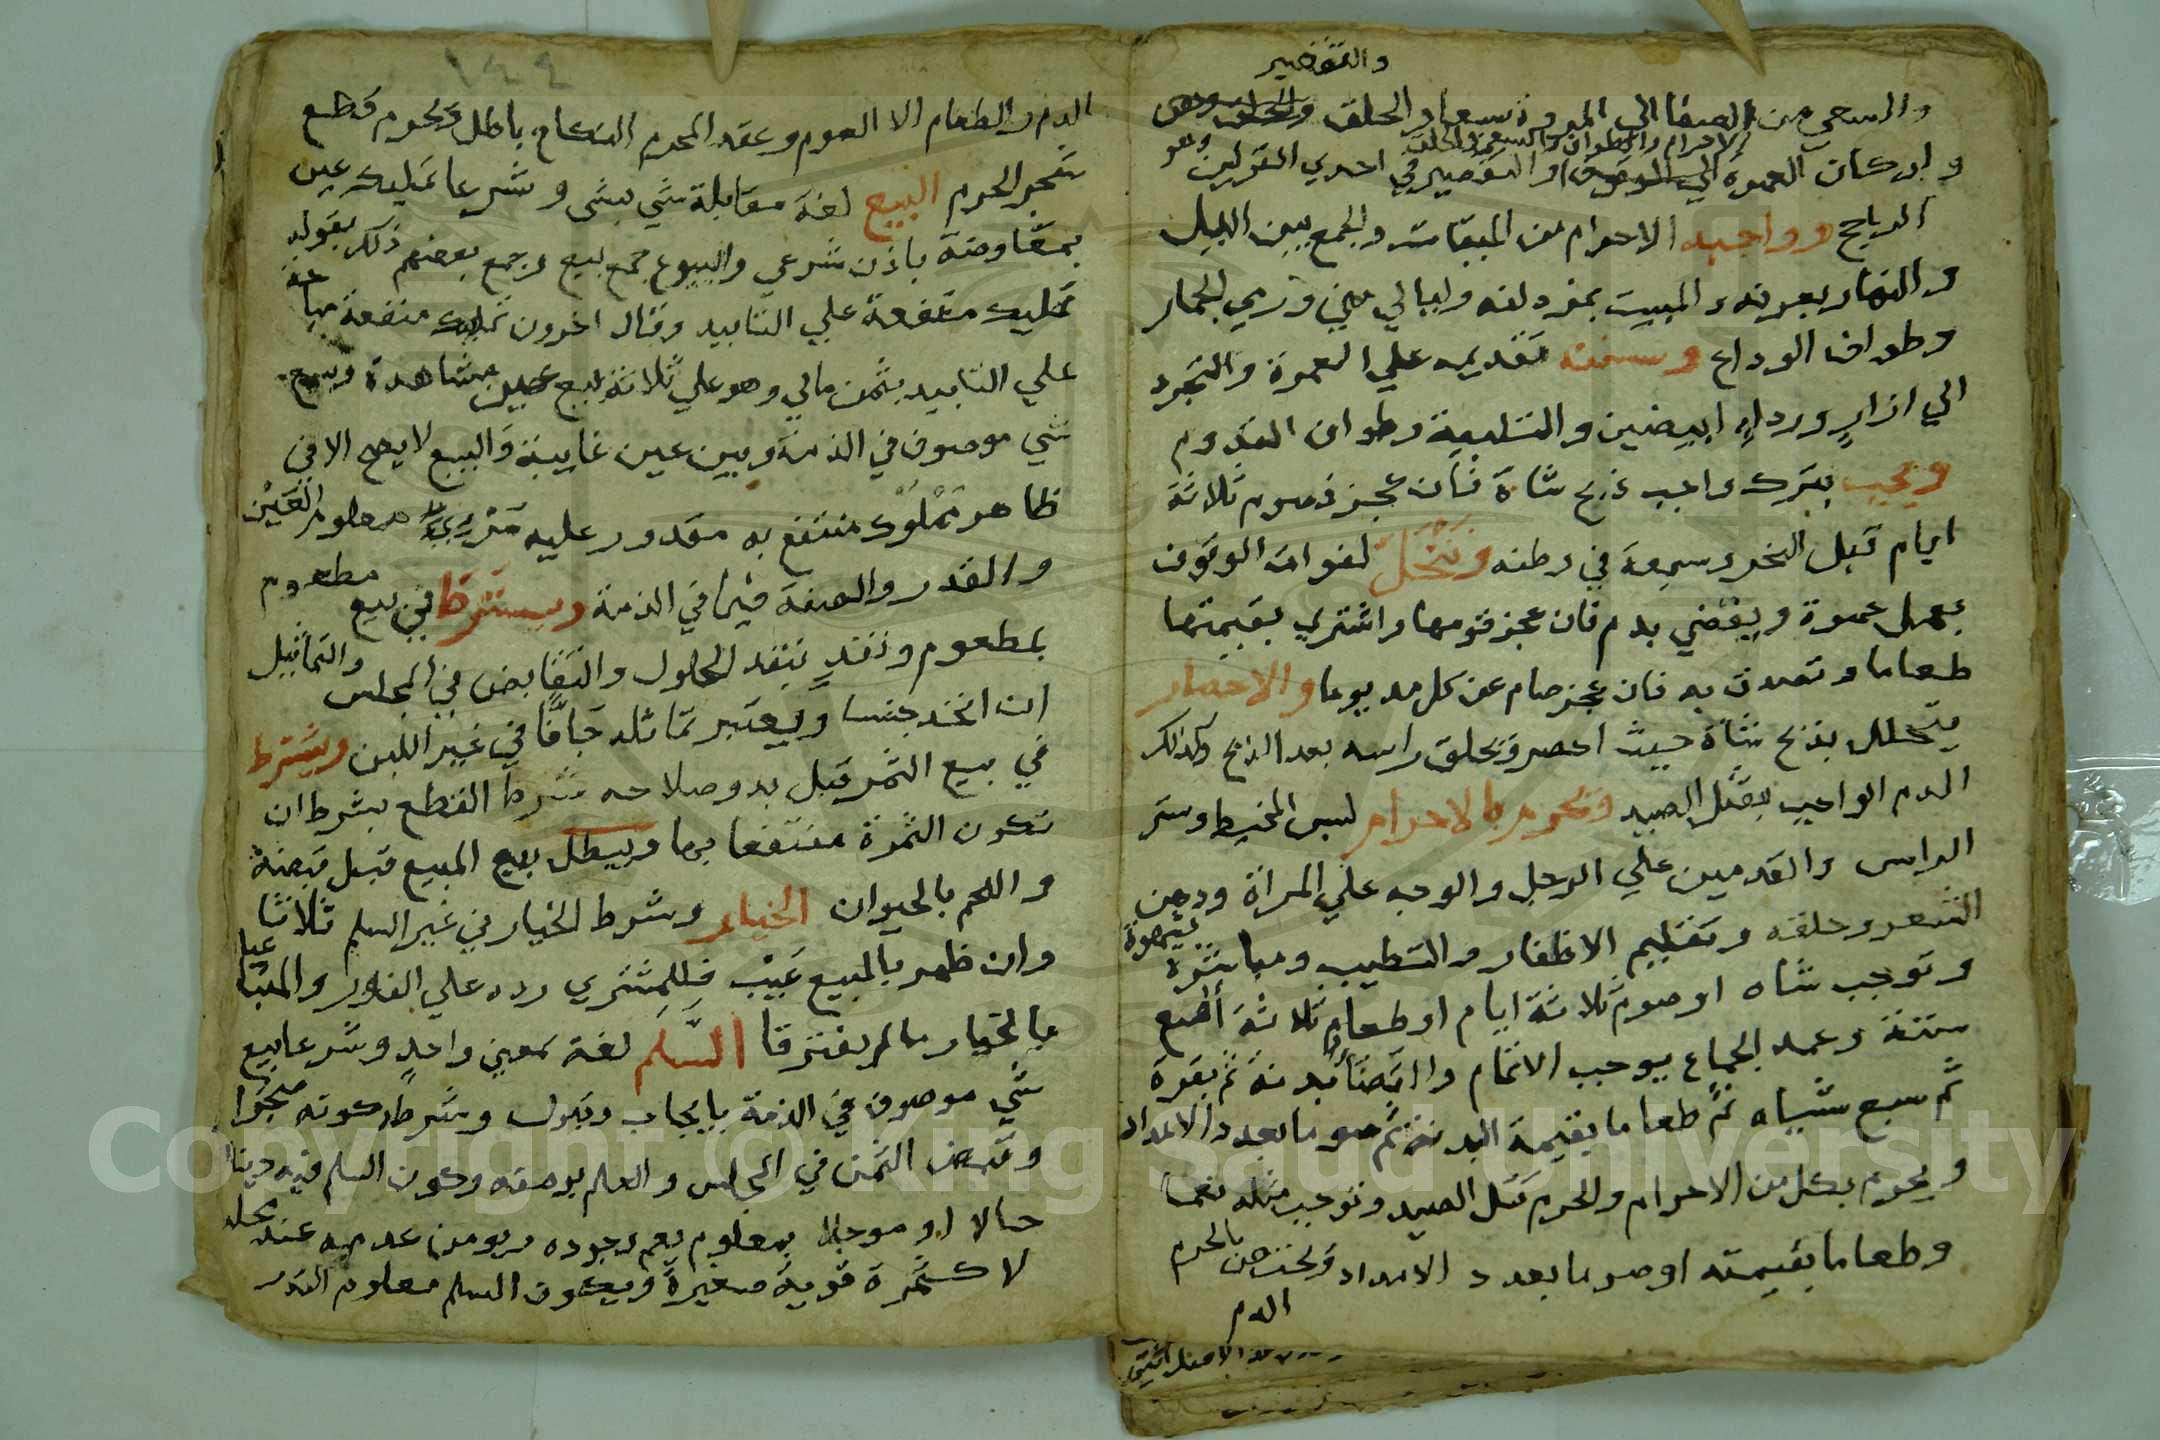 والتقصير
والسعي من الصفا الي المروة سبعا والحلق
الاحرام والطواف والسعي والحلق
واركان العمرة او التقصير في احدي القولين وهو
الراجح وواجبه الاحرام من الميقات والجمع بين الليل
والنهار بعرفه والمبيت بمزدلفه وليالي مني ورمي الجمار
وطواف الوداع وسننه تقديمه علي العمرة والتجرد
الي ازار ورداء ابيضين والتلبية وطواف القدوم
ويجب بترك واجب ذبح شاة فان عجز فصوم ثلاثة
ايام قبل النحر وسبعة في وطنه وتحلل لفوات الوقوف
بعمل عمرة ويقضي بدم فان عجز قومها واشتري بقيمتها
طعاما وتصدق به فان عجز صام عن كل مد يوما والاحصار
يتحلل بذبح شاة حيث احصر وحلق راسه بعد الذبح وكذلك
الدم الواجب بقتل الصيد وتحرم بالاحرام لبس المخيط وستر
الراس والقدمين علي الرجل والوجه علي المراة ودهن
الشعر وحلقه وتقليم الاظفار والتطييب ومباشرة بشهوة
وتوجب شاه او صوم ثلاثة ايام او طعام ثلاثة اصع
ستة وعمد الجماع يوجب الاتمام والقضا بدنة ثم بقرة
ثم سبع شياه ثم طعاما بقيمة البدنة ثم صوما بعدد الامداد
ويحرم بكل من الاحرام والحرم قتل الصيد وتوجب مثله نعما
وطعاما بقيمته او صوما بعدد الامداد ويختص بالحرم
الدم
١٤٤
الدم والطعام الا الصوم وعقد المحرم النكاح باطل ويحرم قطع
شجر الحرم البيع لغة مقابلة شي بشي وشرعا تمليك عين
بمعاوضة باذن شرعي والبيوع جمع بيع وجمع بعضهم ذلك بقوله
تمليك منفعة علي التابيد وقال اخرون تمليك منفعة مباحة
علي التابيد بثمن مالي وهو علي ثلاثة بيع عين مشاهدة وبيع
شي موصوف في الذمة وبين عين غايبة والبيع لا يصح الا في
ظاهر مملوك منتفع به مقدور عليه مريي معلوم العين
والقدر والصفة فيما في الذمة ويشترط في بيع مطعوم
بمطعوم ونقد بنقد الحلول والتقابض في المجلس والتماثيل
ان اتخد جنسا ويعتبر تماثله جافا في غير اللبن ويشترط
في بيع الثمر قبل بدو صلاحه شرط القطع بشرط ان
تكون الثمرة منتفعا بها ويبطل بيع المبيع قبل قبضة
واللحم بالحيوان الخيار وشرط الخيار في غير السلم ثلاثا
وان ظهر بالمبيع عيب فللمشتري رده علي الفور والمتبايعا
بالخيار ما لم يفترقا السلم لغة بمعين واحد وشرعا بيع
شي موصوف في الذمة بايجاب وقبول وشرط كونه منجزا
وقبض الثمن في المجلس والعلم بوصفه وكون السلم فيه دينا
حالا او موجلا بمعلوم يعم وجوده ويومن عدمه عند محله
لا كثمرة قرية صغيرة ويكون السلم معلوم القدر
Copyright © King Saud University